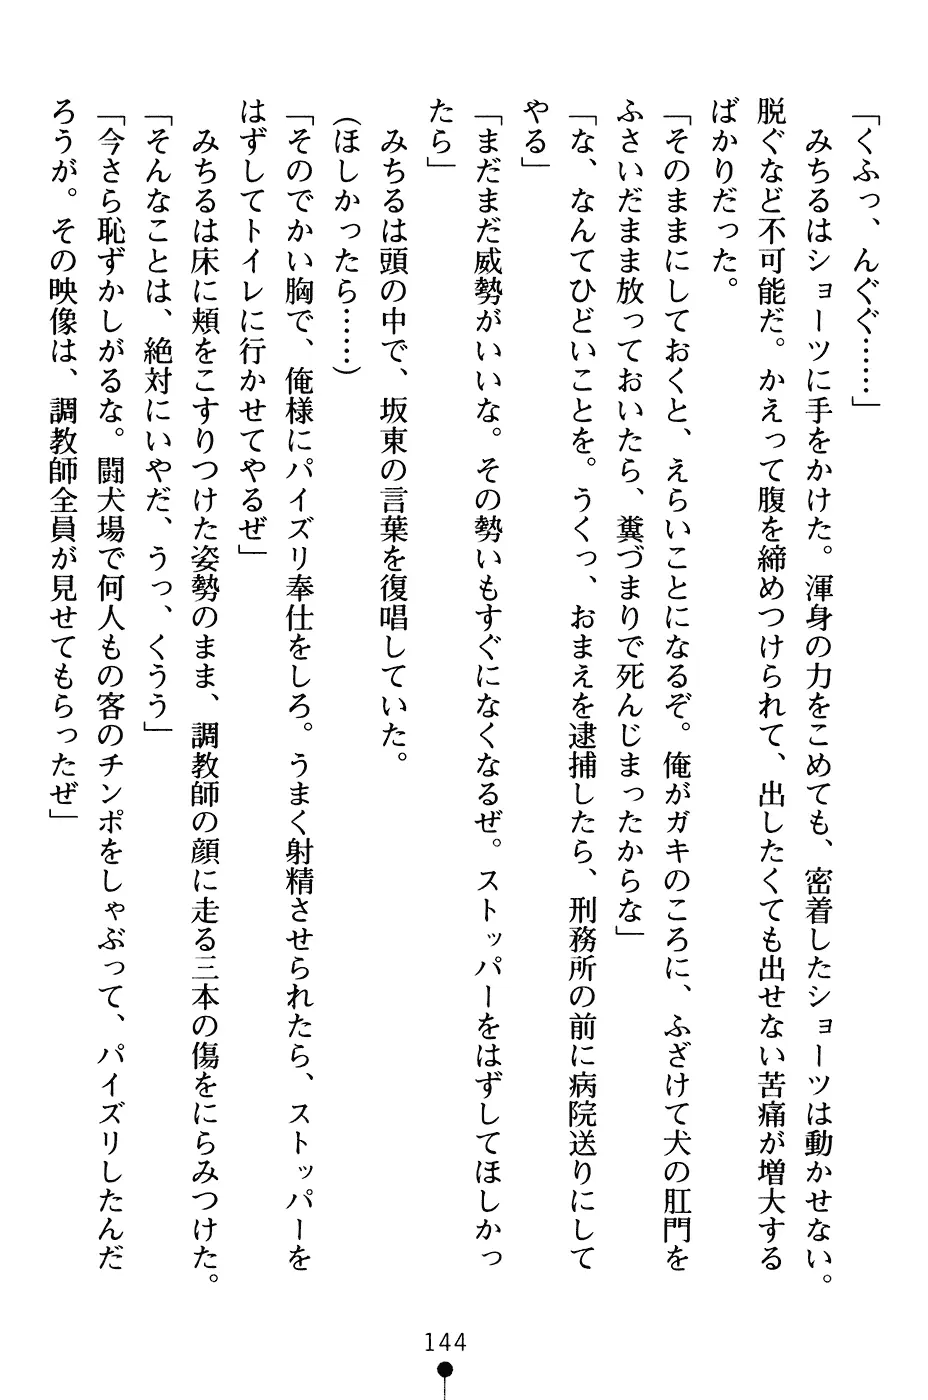 「くふっ、んぐぐ……」
みちるはショーツに手をかけた。渾身の力をこめても、密着したショーツは動かせない。
脱ぐなど不可能だ。かえって腹を締めつけられて、出したくても出せない苦痛が増大する
ばかりだった。
「そのままにしておくと、えらいことになるぞ。俺がガキのころに、ふざけて犬の肛門を
ふさいだまま放っておいたら、糞づまりで死んじまったからな」
「な、なんてひどいことを。うくっ、おまえを逮捕したら、刑務所の前に病院送りにして
やる」
「まだまだ威勢がいいな。その勢いもすぐになくなるぜ。ストッパーをはずしてほしかっ
たら」
みちるは頭の中で、坂東の言葉を復唱していた。
(ほしかったら……)
「そのでかい胸で、俺様にパイズリ奉仕をしろ。うまく射精させられたら、ストッパーを
はずしてトイレに行かせてやるぜ」
みちるは床に頬をこすりつけた姿勢のまま、調教師の顔に走る三本の傷をにらみつけた。
「そんなことは、絶対にいやだ、うっ、くうう」
「今さら恥ずかしがるな。闘犬場で何人もの客のチンポをしゃぶって、パイズリしたんだ
ろうが。その映像は、調教師全員が見せてもらったぜ」
144